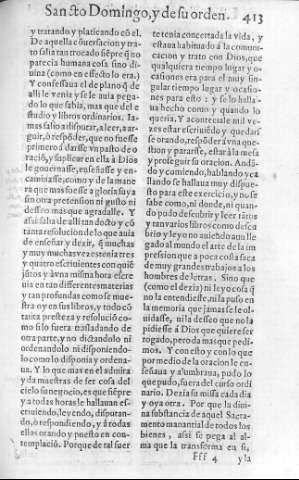 Sancto Domingo, y de su orden. 413
y tratando y platicando cõ el.
De aquella cõuersacion y tra-
to salia tan trocado siẽpre q̃ no
parecia humana cosa sino di-
uina (como en effecto lo era.)
Y confessaua el de plano q̃ de
alli le venia y se le auia pega-
do lo que sabia, mas que del e
studio y libros ordinarios. Ia-
mas salio a disputar, a leer, a ar-
guir, ò respõder, que no fuesse
primero à darse vn pasto de o
raciõ, y suplicar en ella à Dios
le gouernasse, enseñasse y en-
caminasse, como y de la mane
ra que mas fuesse a gloria suya
sin otra pretension ni gusto ni
desseo mas que agradalle. Y
assi salia de alli tan docto y cõ
tanta resoluciõ de lo que auia
de enseñar y dezir, q̃ muchas
y muy muchas vezes tenia tres
y quatro escriuientes con quiẽ
jũtos y à vna misma hora escre
uia en tan differentes materias
y tan profundas como se mue-
stra oy en sus libros, y todo cõ
tanta presteza y resoluciõ co-
mo si lo fuera trasladando de
otra parte, y no dictandolo ni
ordenandolo ni disponiendo-
lo como lo disponia y ordena-
ua. Y lo que mas en el admira
y da muestras de ser cosa del
cielo su negocio, es que siẽpre
y a todas horas le hallauan es-
criuiendo, leyendo, disputan-
do, ò respondiendo, y à todas
ellos orando y puesto en con-
templaciõ. Porque de tal suer
te tenia concertada la vida, y
estaua habituado à la comuni-
cacion y trato con Dios, que
qualquiera tiempo lugar y o-
casiones era para el muy sin-
gular tiempo lugar y ocasio-
nes para esto: y se lo halla-
ua hecho como y quando lo
queria. Y acontecale mil ve-
zes estar escriuiẽdo y quedarse
orando, respõder à vna que-
stion y pararse, estar à la mesa
y proseguir su oracion. Andã-
do y comiendo, hablando y ca
llando se hallaua muy dispue-
sto para este exercicio, y no se
sabe como, ni donde, ni quan-
do pudo descubrir y leer tãtos
y tan varios libros como descu
brio y leyo no auiẽdo aun lle-
gado al mundo el arte de la im
pression que a poca costa saca
de muy grandes trabajos a los
hombres de letras. Sino que
(como el dezia) ni leyo cosa q̃
no la entendiesse, ni la puso en
la memoria que jamas se le ol-
uidasse, ni la desseo que no la
pidiesse à Dios que quiere ser
rogado, pero da mas que pedi-
mos. Y con esto y con lo que
por medio de la oracion le en-
señaua y alumbraua, pudo lo
que pudo, fuera del curso ordi-
nario. Dezia su missa cada dia
y oya otra. Por que la diui-
na substancia de aquel Sacra-
mento manantial de todos los
bienes, assi se pega al al-
ma que la transforma en si,
Fff 4 y la